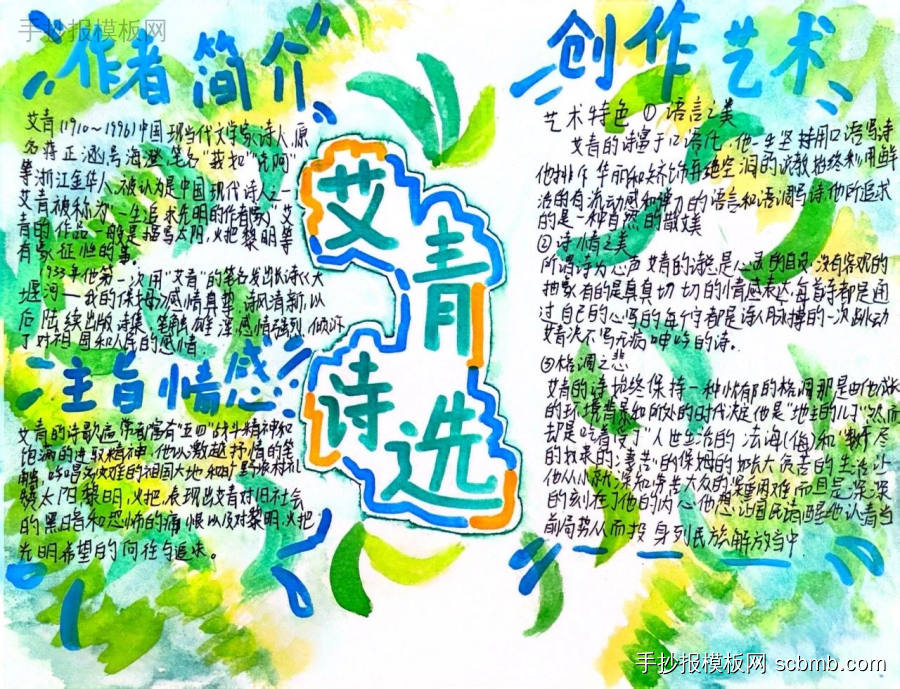 手抄报模板网
作者简介
艾青(1910～1996)中国现当代文学家诗人原
名蒋正涵,号海澄,笔名"莪加"克阿"
等浙江金华人,被认为是中国现代诗人之一
艾青被称为"一生追求光明的作者"艾
青的作品一般是描写太阳,火把黎明等
有象征性的事。
1933年他第一次用"艾青"的笔名发出长诗《大
堰河——我的保姆》感情真挚,诗风清新,以
后陆续出版诗集,笔触雄浑,感情强烈,倾诉
了对祖国和人民的感情
主旨情感
艾青的诗歌富有"五四"战斗精神和
饱满的进取精神,他以激越抒情的笔
触,歌唱灾难的祖国大地和旷野
太阳黎明,火把,表现出艾青对旧社会
的黑暗和恐怖的痛恨以及对黎明,火把
光明希望的向往与追求。
艾青
诗选
创作艺术
艺术特色 ①语言之美
艾青的诗富于口语化,他一生坚持用口语写诗
他排斥华丽和矫饰弃绝空洞的说教始终利用鲜
活的有流动感和弹力的语言和语调写诗他所追求
的是一种自然的散文美
②诗情之美
所谓诗为心声艾青的诗总是心灵的自况没有客观的
抽象有的是真真切切的情感表达,每首诗都是通
过自己的心写的每个字都是诗人脉搏的一次跳动
艾青决不写无病呻吟的诗。
③格调之悲
艾青的诗始终保持一种忧郁的格调那是由他成长
的环境背景和他所处的时代决定他是"地主的儿子"然而
却是吃着受了"人世生活的凌侮(侮)和"数不尽
的奴隶的凄苦"的保姆的奶长大贫苦的生活让
他从小就深知劳苦大众的艰难困难而且是深深
的刻在了他的内心他想让国民清醒他认清当
前局势从而投身到民族解放当中
手抄报模板网 scbmb.com